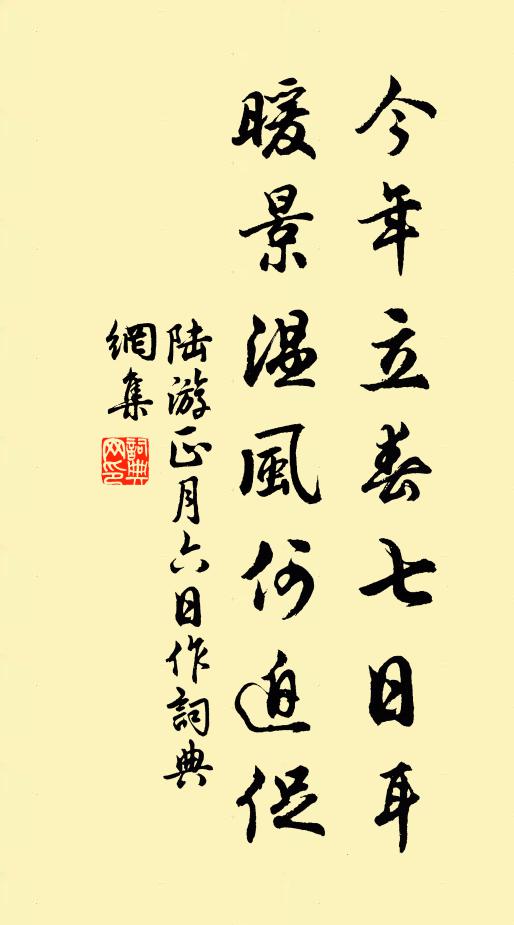 今年立春七日耳
暖景温風何迫促
陆游正月六日作詞典
網集
詞典网印